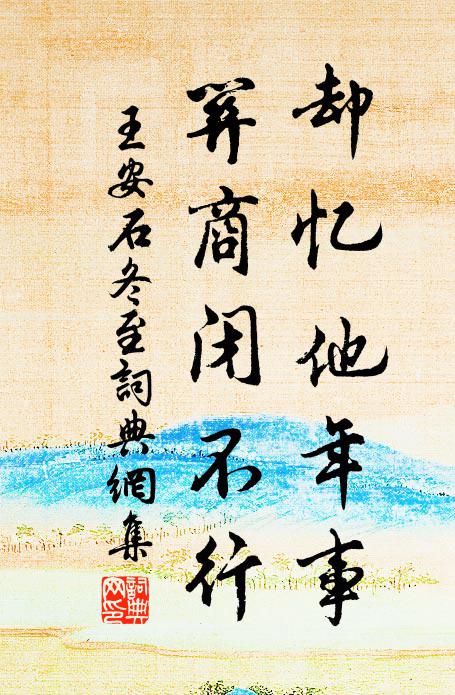 却忆他年事
关商闭不行
王安石冬至詞典網集
詞典
网印